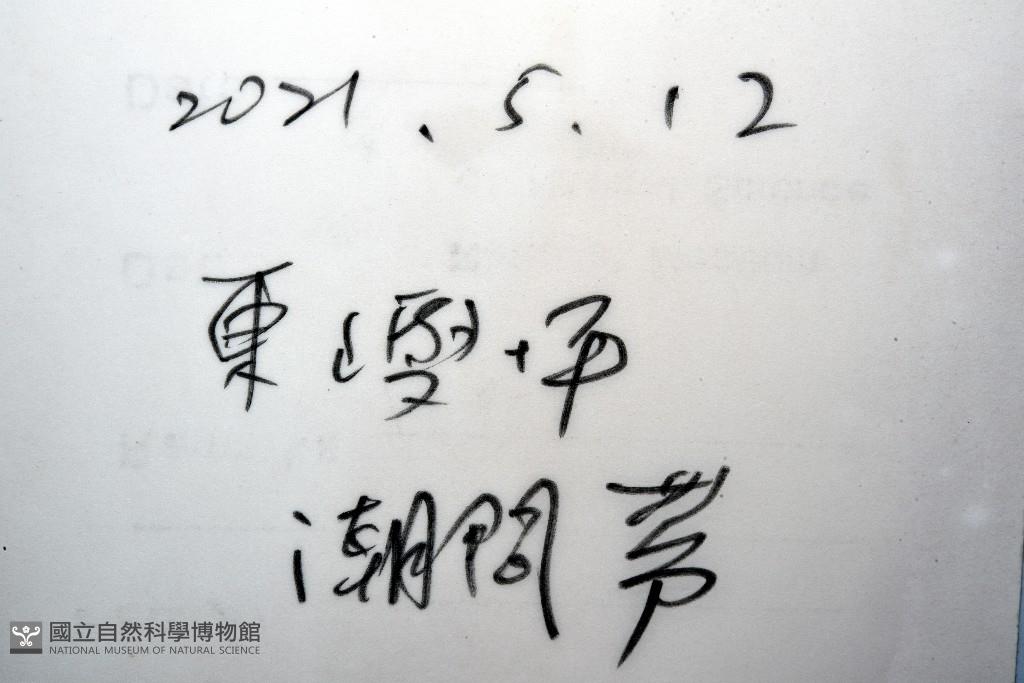 2021.5.12
東澳坪
潮間帶
國立自然科學博物館
NATIONAL MUSEUM OF NATURAL SCIENCE